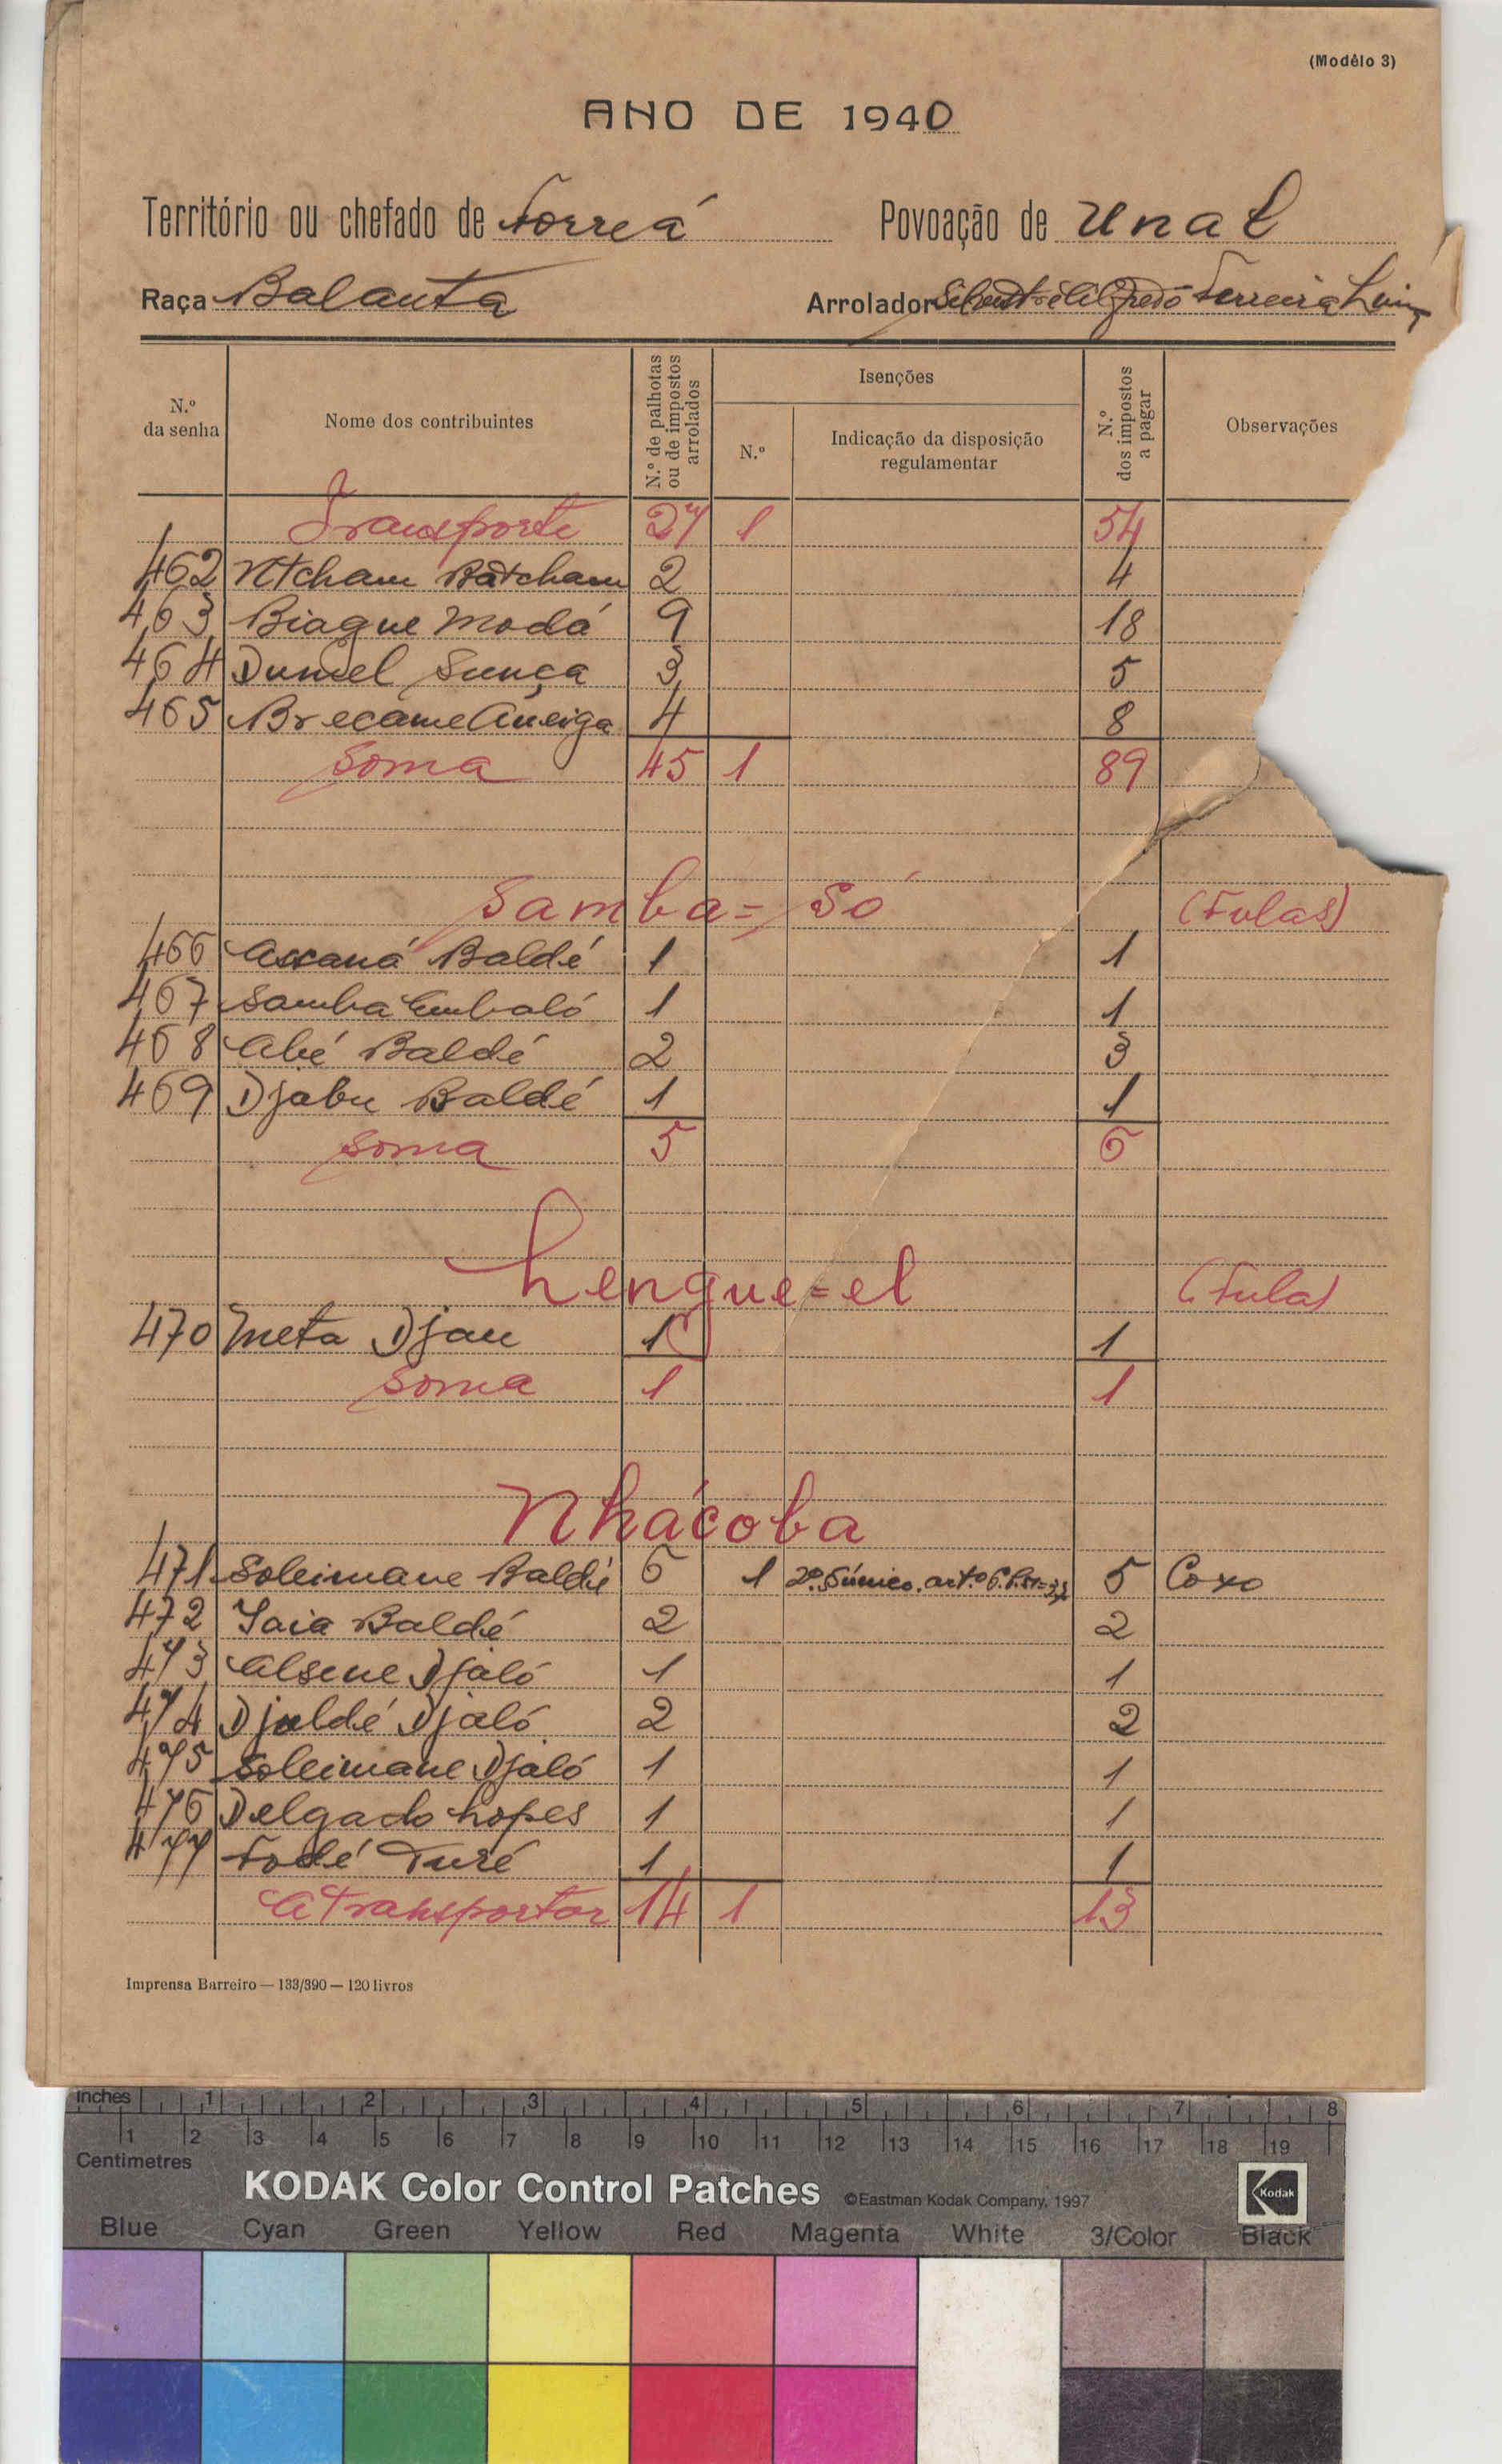 (Modêlo 3)
ANO DE 1940
Território ou chefado de Forreá Povoação de Unal
Raça Balanta Arrolador Ferreira
N.º da senha Nome dos contribuintes N.º de palhotas ou de impostos arrolados Isenções N.º Indicação da disposição regulamentar N.º dos impostos a pagar Observações
Transporte 27 1 54
462 Ntcham Batcham 2 4
463 Biague Modá 9 18
464 Dumsel Sunça 3 5
465 Brecame Aneiga 4 8
Soma 45 1 89
Samba=Só (Fulas)
466 Assaná Baldé 1 1
467 Samba Embaló 1 1
468 Abé Baldé 2 3
469 Djabu Baldé 1 1
Soma 5 6
Lengue=el (Fula)
470 Meta Djau 1 1
Soma 1 1
Nhácoba
471 Soleimane Baldé 6 1 2º. § único. art.º 6. 5 Coxo
472 Iaia Baldé 2 2
473 Alsene Djaló 1 1
474 Djaldé Djaló 2 2
475 Soleimane Djaló 1 1
476 Delgado Lopes 1 1
477 Fodé Turé 1 1
A Transportar 14 1 13
Imprensa Barreiro — 133/390 — 120 livros
inches 1 2 3 4 5 6 7 8
1 2 3 4 5 6 7 8 9 10 11 12 13 14 15 16 17 18 19
Centimetres
KODAK Color Control Patches ©Eastman Kodak Company, 1997 Kodak
Blue Cyan Green Yellow Red Magenta White 3/Color Black